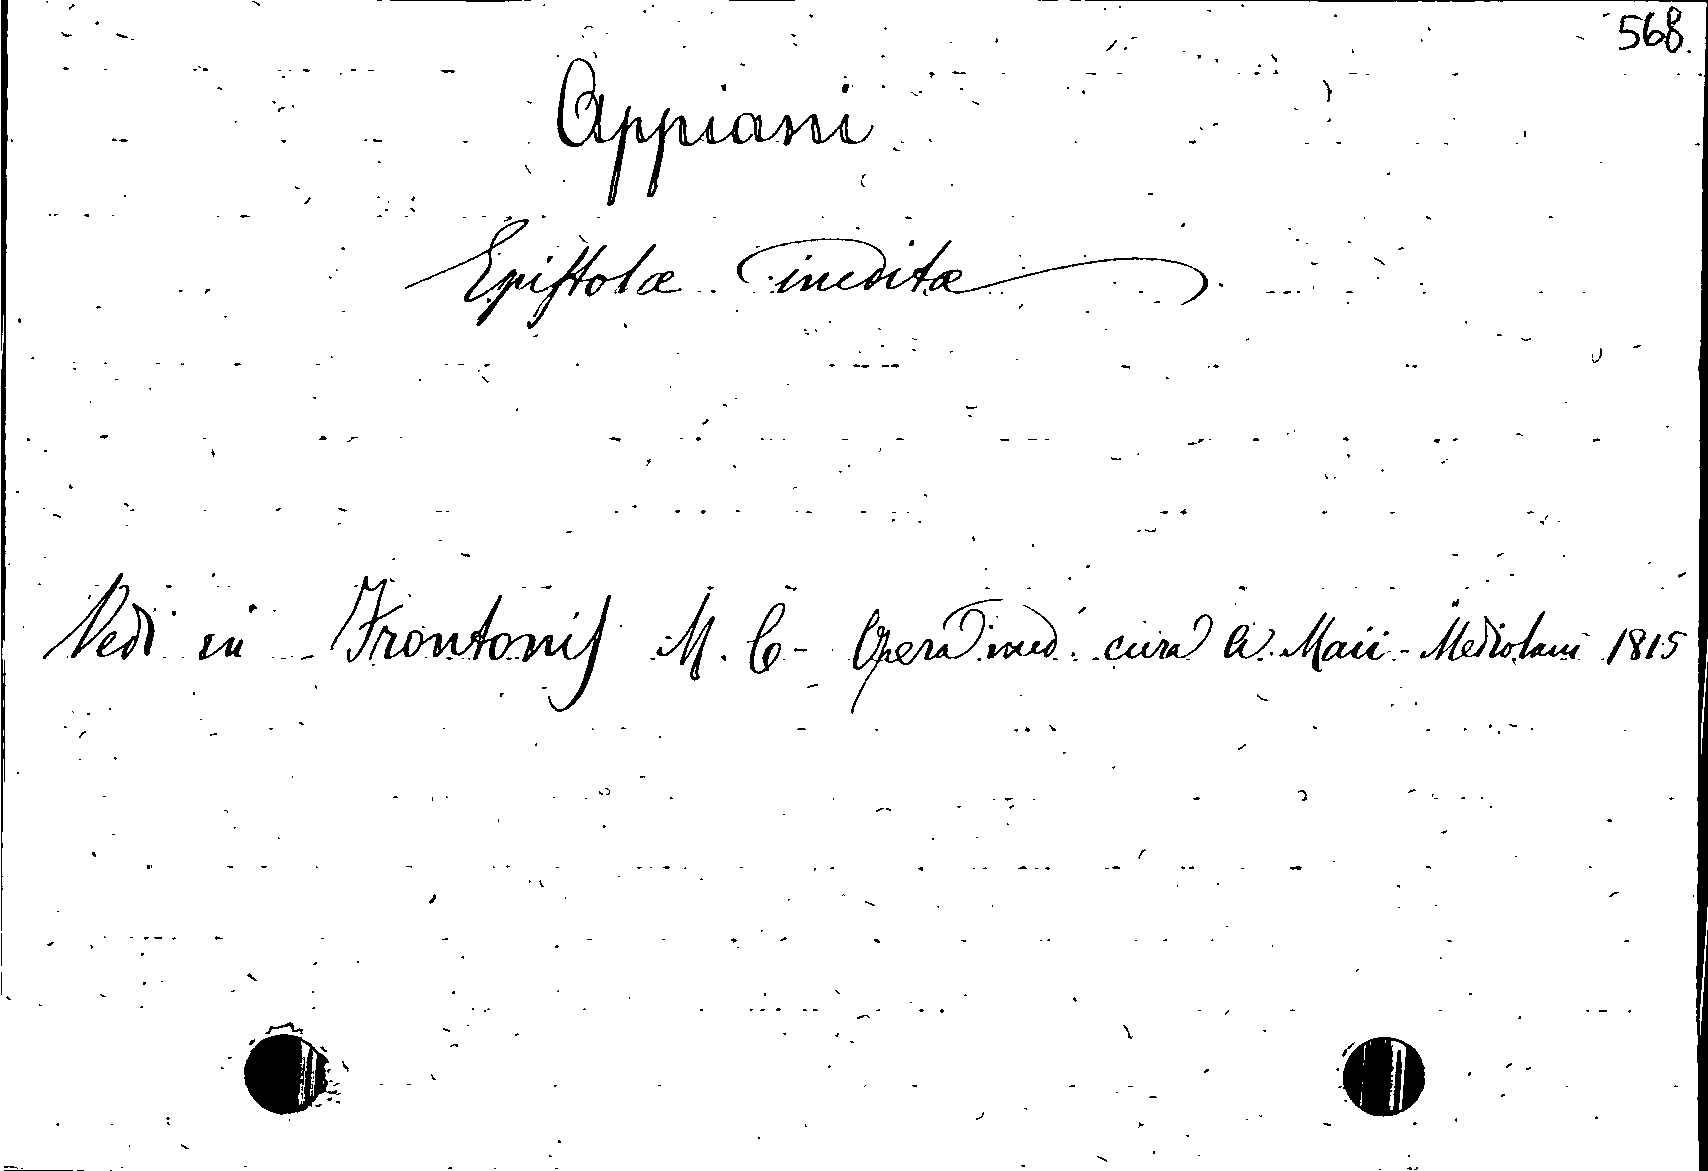 568.
Appiani
Epistolæ ineditæ
Vedi in Frontonis M. C- Opera ined. cura A. Maii - Mediolani 1815